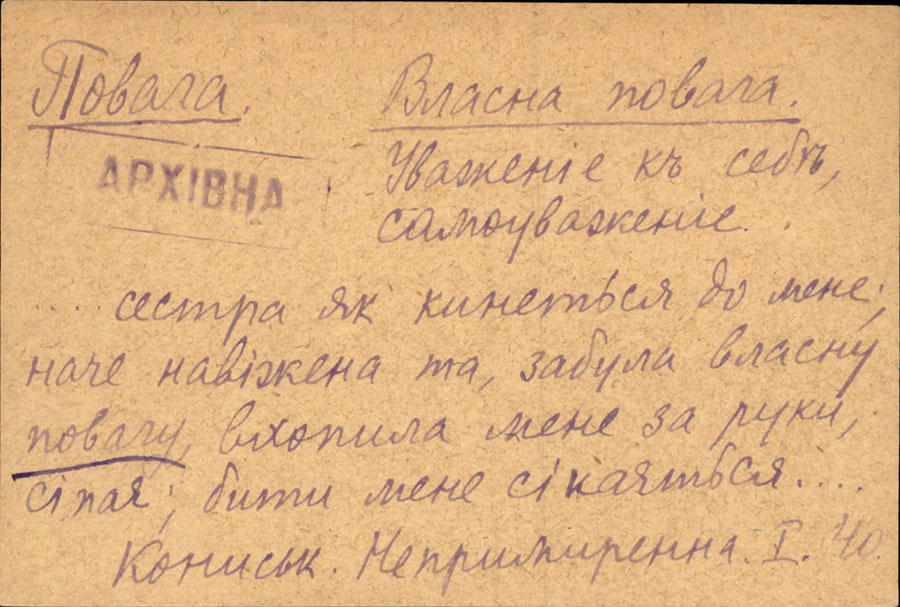 Повага. Власна повага.
АРХІВНА
Уваженіе къ себѣ,
самоуваженіе.
.... сестра як кинеться до мене;
наче навіжена та, забула власну
повагу, вхопила мене за руки,
сіпая; бити мене сікаяться....
Кониськ. Непримиренна. I. 40.